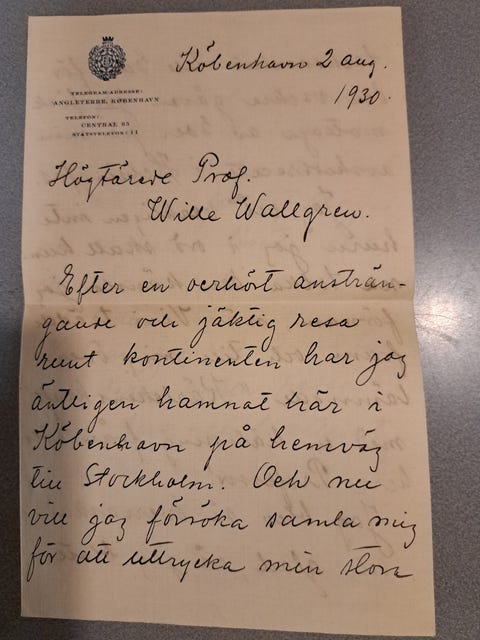 TELEGRAM-ADRESSE:
ANGLETERRE, KØBENHAVN
TELEFON:
CENTRAL 95
STATSTELEFON: 11
København 2 aug.
1930.
Högtärede Prof.
Wille Wallgren.
Efter en oerhört ansträn-
gande och jäktig resa
runt kontinenten har jag
äntligen hamnat här i
København på hemväg
till Stockholm. Och nu
vill jag försöka samla mig
för att uttrycka min stora